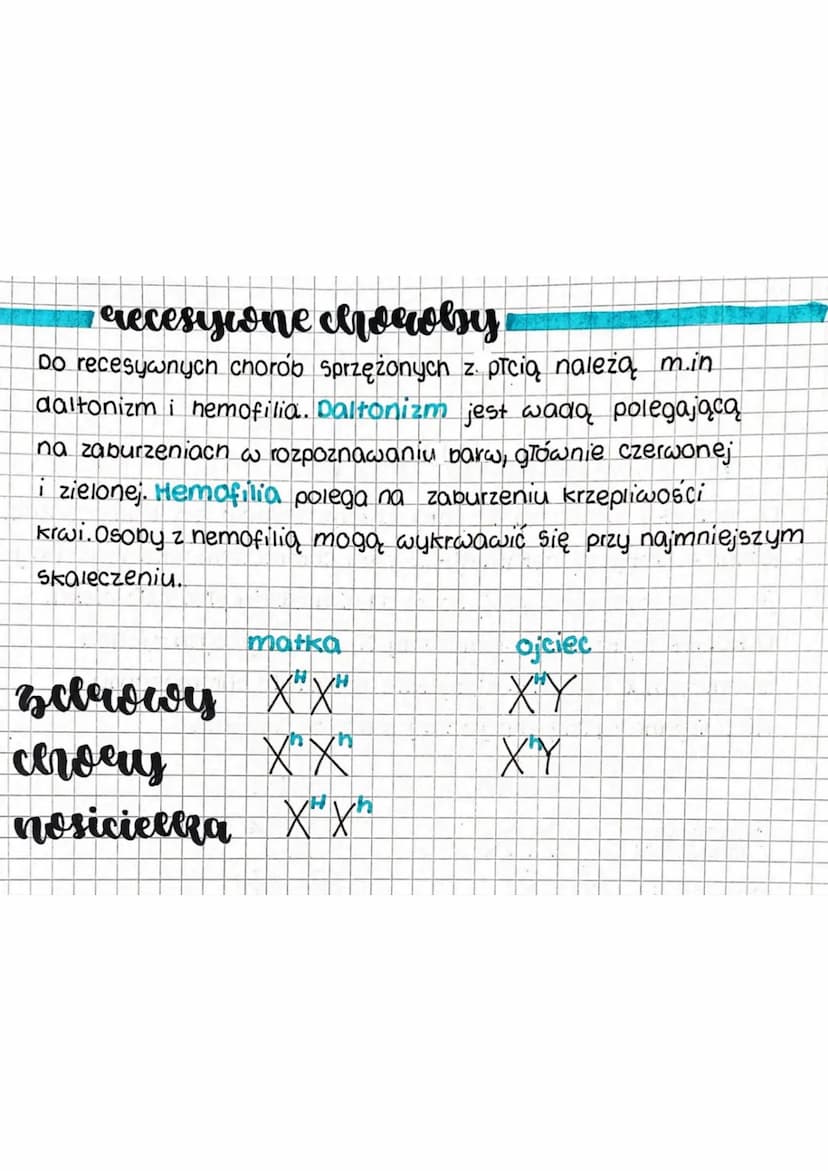 recesywne choroby
Do recesywnych chorób sprzężonych z płcią należą m.in
daltonizm i hemofilia. Daltonizm jest wadą polegającą
na zaburzeniach w rozpoznawaniu barw, głównie czerwonej
i zielonej. Hemofilia polega na zaburzeniu krzepliwości
krwi. Osoby z hemofilią mogą wykrwawić się przy najmniejszym
skaleczeniu.
matka ojciec
zdrowy XᴴXᴴ XᴴY
chory XʰXʰ XʰY
nosicielka XᴴXʰ